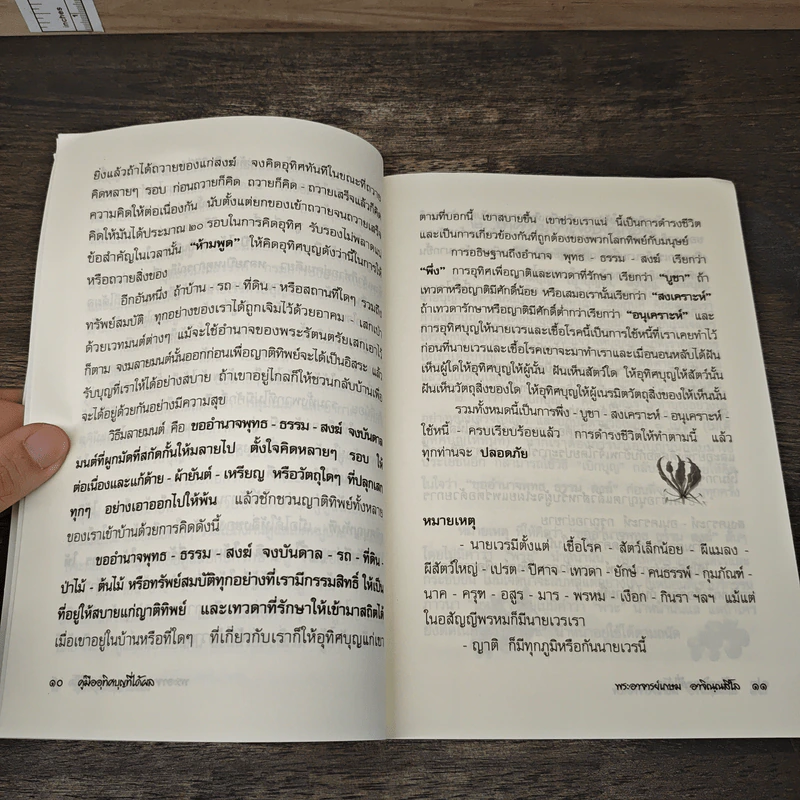 inches
ยิ่งแล้วถ้าได้ถวายของแก่สงฆ์ จงคิดอุทิศทันทีในขณะที่ถวาย
คิดหลายๆ รอบ ก่อนถวายก็คิด ถวายก็คิด - ถวายเสร็จแล้วก็คิด
ความคิดให้ต่อเนื่องกัน นับตั้งแต่ยกของเข้าถวายจนถวายเสร็จ
คิดให้มันได้ประมาณ ๒๐ รอบในการคิดอุทิศ รับรองไม่พลาดแน่
ข้อสำคัญในเวลานั้น "ห้ามพูด" ให้คิดอุทิศบุญดังว่านี้ในการให้
หรือถวายสิ่งของ
อีกอันหนึ่ง ถ้าบ้าน - รถ - ที่ดิน - หรือสถานที่ใดๆ รวมถึง
ทรัพย์สมบัติ ทุกอย่างของเราได้ถูกเจิมไว้ด้วยอาคม - เสกเป่า
ด้วยเวทมนต์ต่างๆ แม้จะใช้อำนาจของพระรัตนตรัยเสกเอาไว้
ก็ตาม จงมลายมนต์นั้นออกก่อนเพื่อญาติทิพย์จะได้เป็นอิสระ แล้ว
รับบุญที่เราให้ได้อย่างสบาย ถ้าเขาอยู่ไกลก็ให้ชวนกลับบ้านเพื่อ
จะได้อยู่ด้วยกันอย่างมีความสุข
วิธีมลายมนต์ คือ ขออำนาจพุทธ - ธรรม - สงฆ์ จงบันดาล
มนต์ที่ผูกมัดที่สกัดกั้นให้มลายไป ตั้งใจคิดหลายๆ รอบ ให้
ต่อเนื่องและแก้ด้าย - ผ้ายันต์ - เหรียญ หรือวัตถุใดๆ ที่ปลุกเสก
ทุกๆ อย่างเอาออกไปให้พ้น แล้วชักชวนญาติทิพย์ทั้งหลาย
ของเราเข้าบ้านด้วยการคิดดังนี้
ขออำนาจพุทธ - ธรรม - สงฆ์ จงบันดาล - รถ - ที่ดิน -
ป่าไม้ - ต้นไม้ หรือทรัพย์สมบัติทุกอย่างที่เรามีกรรมสิทธิ์ ให้เป็น
ที่อยู่ให้สบายแก่ญาติทิพย์ และเทวดาที่รักษาให้เข้ามาสถิตได้
เมื่อเขาอยู่ในบ้านหรือที่ใดๆ ที่เกี่ยวกับเราก็ให้อุทิศบุญแก่เขา
๑๐ คู่มืออุทิศบุญที่ได้ผล
ตามที่บอกนี้ เขาสบายขึ้น เขาช่วยเราแน่ นี้เป็นการดำรงชีวิต
และเป็นการเกี่ยวข้องกันที่ถูกต้องของพวกโลกทิพย์กับมนุษย์
การอธิษฐานถึงอำนาจ พุทธ - ธรรม - สงฆ์ เรียกว่า
"พึ่ง" การอุทิศเพื่อญาติและเทวดาที่รักษา เรียกว่า "บูชา" ถ้า
เทวดาหรือญาติมีศักดิ์น้อย หรือเสมอเรานั้นเรียกว่า "สงเคราะห์"
ถ้าเทวดารักษาหรือญาติมีศักดิ์ต่ำกว่าเรียกว่า "อนุเคราะห์" และ
การอุทิศให้นายเวรและเชื้อโรคนี้เป็นการใช้หนี้ที่เราเคยทำไว้
ก่อนที่นายเวรและเชื้อโรคเขาจะมาทำเราและเมื่อนอนหลับได้ฝัน
เห็นผู้ใดให้อุทิศให้ผู้นั้น ฝันเห็นสัตว์ใด ให้อุทิศให้สัตว์นั้น
ฝันเห็นวัตถุสิ่งของใด ให้อุทิศให้ผู้เนรมิตวัตถุสิ่งของให้เห็นนั้น
รวมทั้งหมดนี้เป็นการพึ่ง - บูชา - สงเคราะห์ - อนุเคราะห์ -
ใช้หนี้ - ครบเรียบร้อยแล้ว การดำรงชีวิตให้ทำตามนี้ แล้ว
ทุกท่านจะ ปลอดภัย
หมายเหตุ
- นายเวรมีตั้งแต่ เชื้อโรค - สัตว์เล็กน้อย - ผีแมลง -
ผีสัตว์ใหญ่ - เปรต - ปีศาจ - เทวดา - ยักษ์ - คนธรรพ์ - กุมภัณฑ์ -
นาค - ครุฑ - อสูร - มาร - พรหม - เงือก - กินรา ฯลฯ แม้แต่
ในอสัญญีพรหมก็มีนายเวรเรา
- ญาติ ก็มีทุกภูมิหรือกันนายเวรนี้
พระอาจารย์เกษม อาจิณฺณสีโล ๑๑